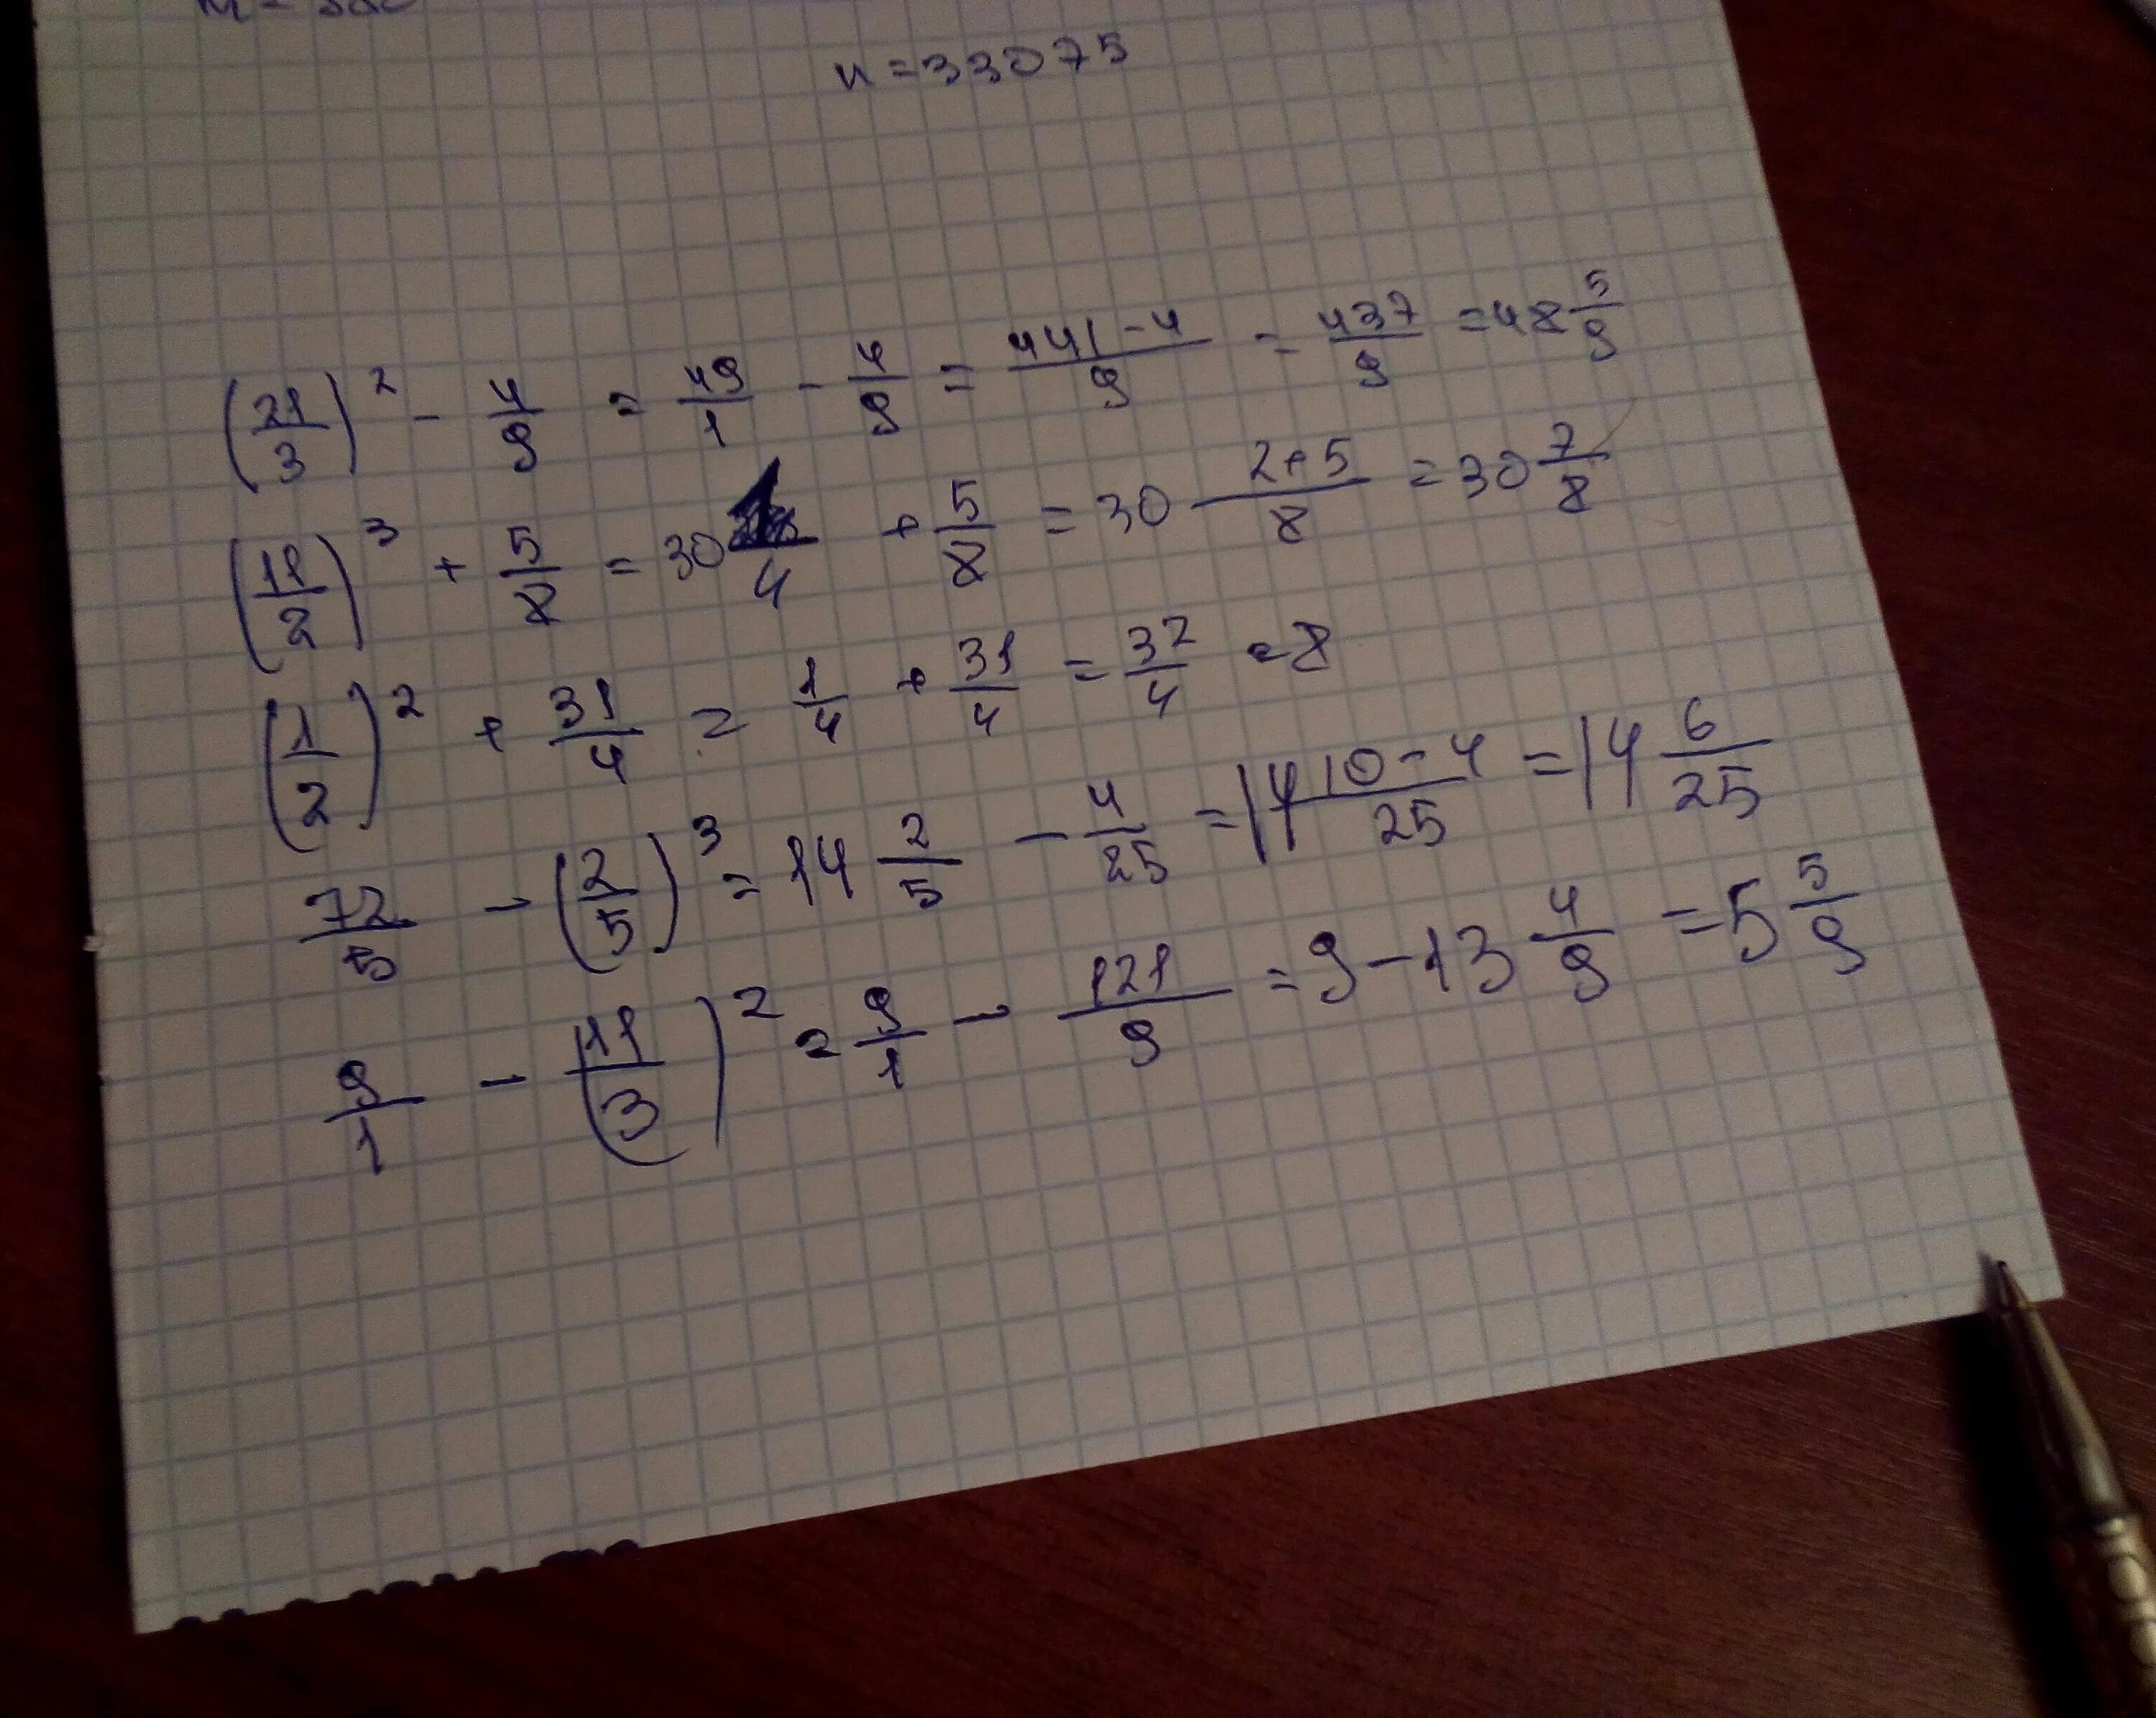 n = 33075
(21/3)² - 4/9 = 49/1 - 4/9 = 441-4/9 = 437/9 = 48 5/9
(11/2)³ + 5/8 = 30 1/4 + 5/8 = 30 2+5/8 = 30 7/8
(1/2)² + 31/4 = 1/4 + 31/4 = 32/4 = 8
72/5 - (2/5)³ = 14 2/5 - 4/25 = 14 10-4/25 = 14 6/25
9/1 - (11/3)² = 9/1 - 121/9 = 9-13 4/9 = 5 5/9